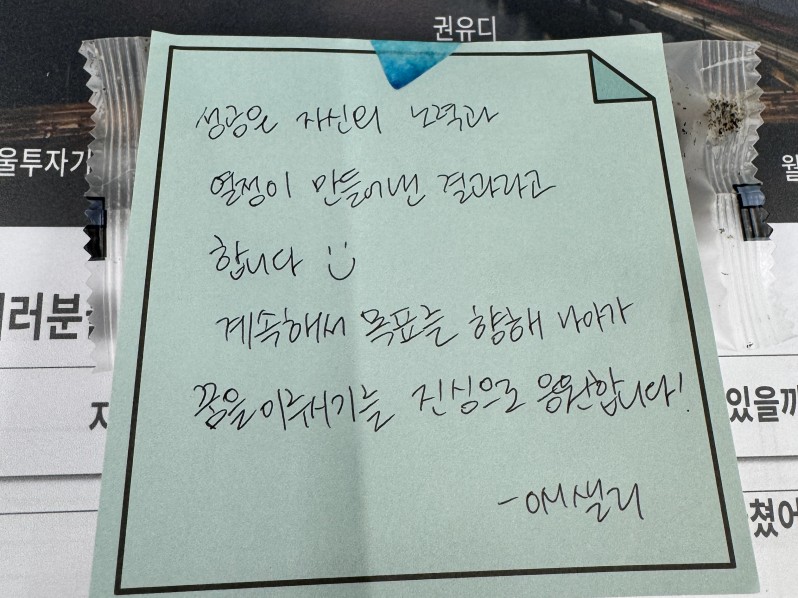 권유디
성공은 자신의 노력과
울투자가
월
열정이 만들어낸 결과라고
합니다 :)
러분
계속해서 목표를 향해 나아가
꿈을 이루시기를 진심으로 응원합니다!
있을까
쳤어